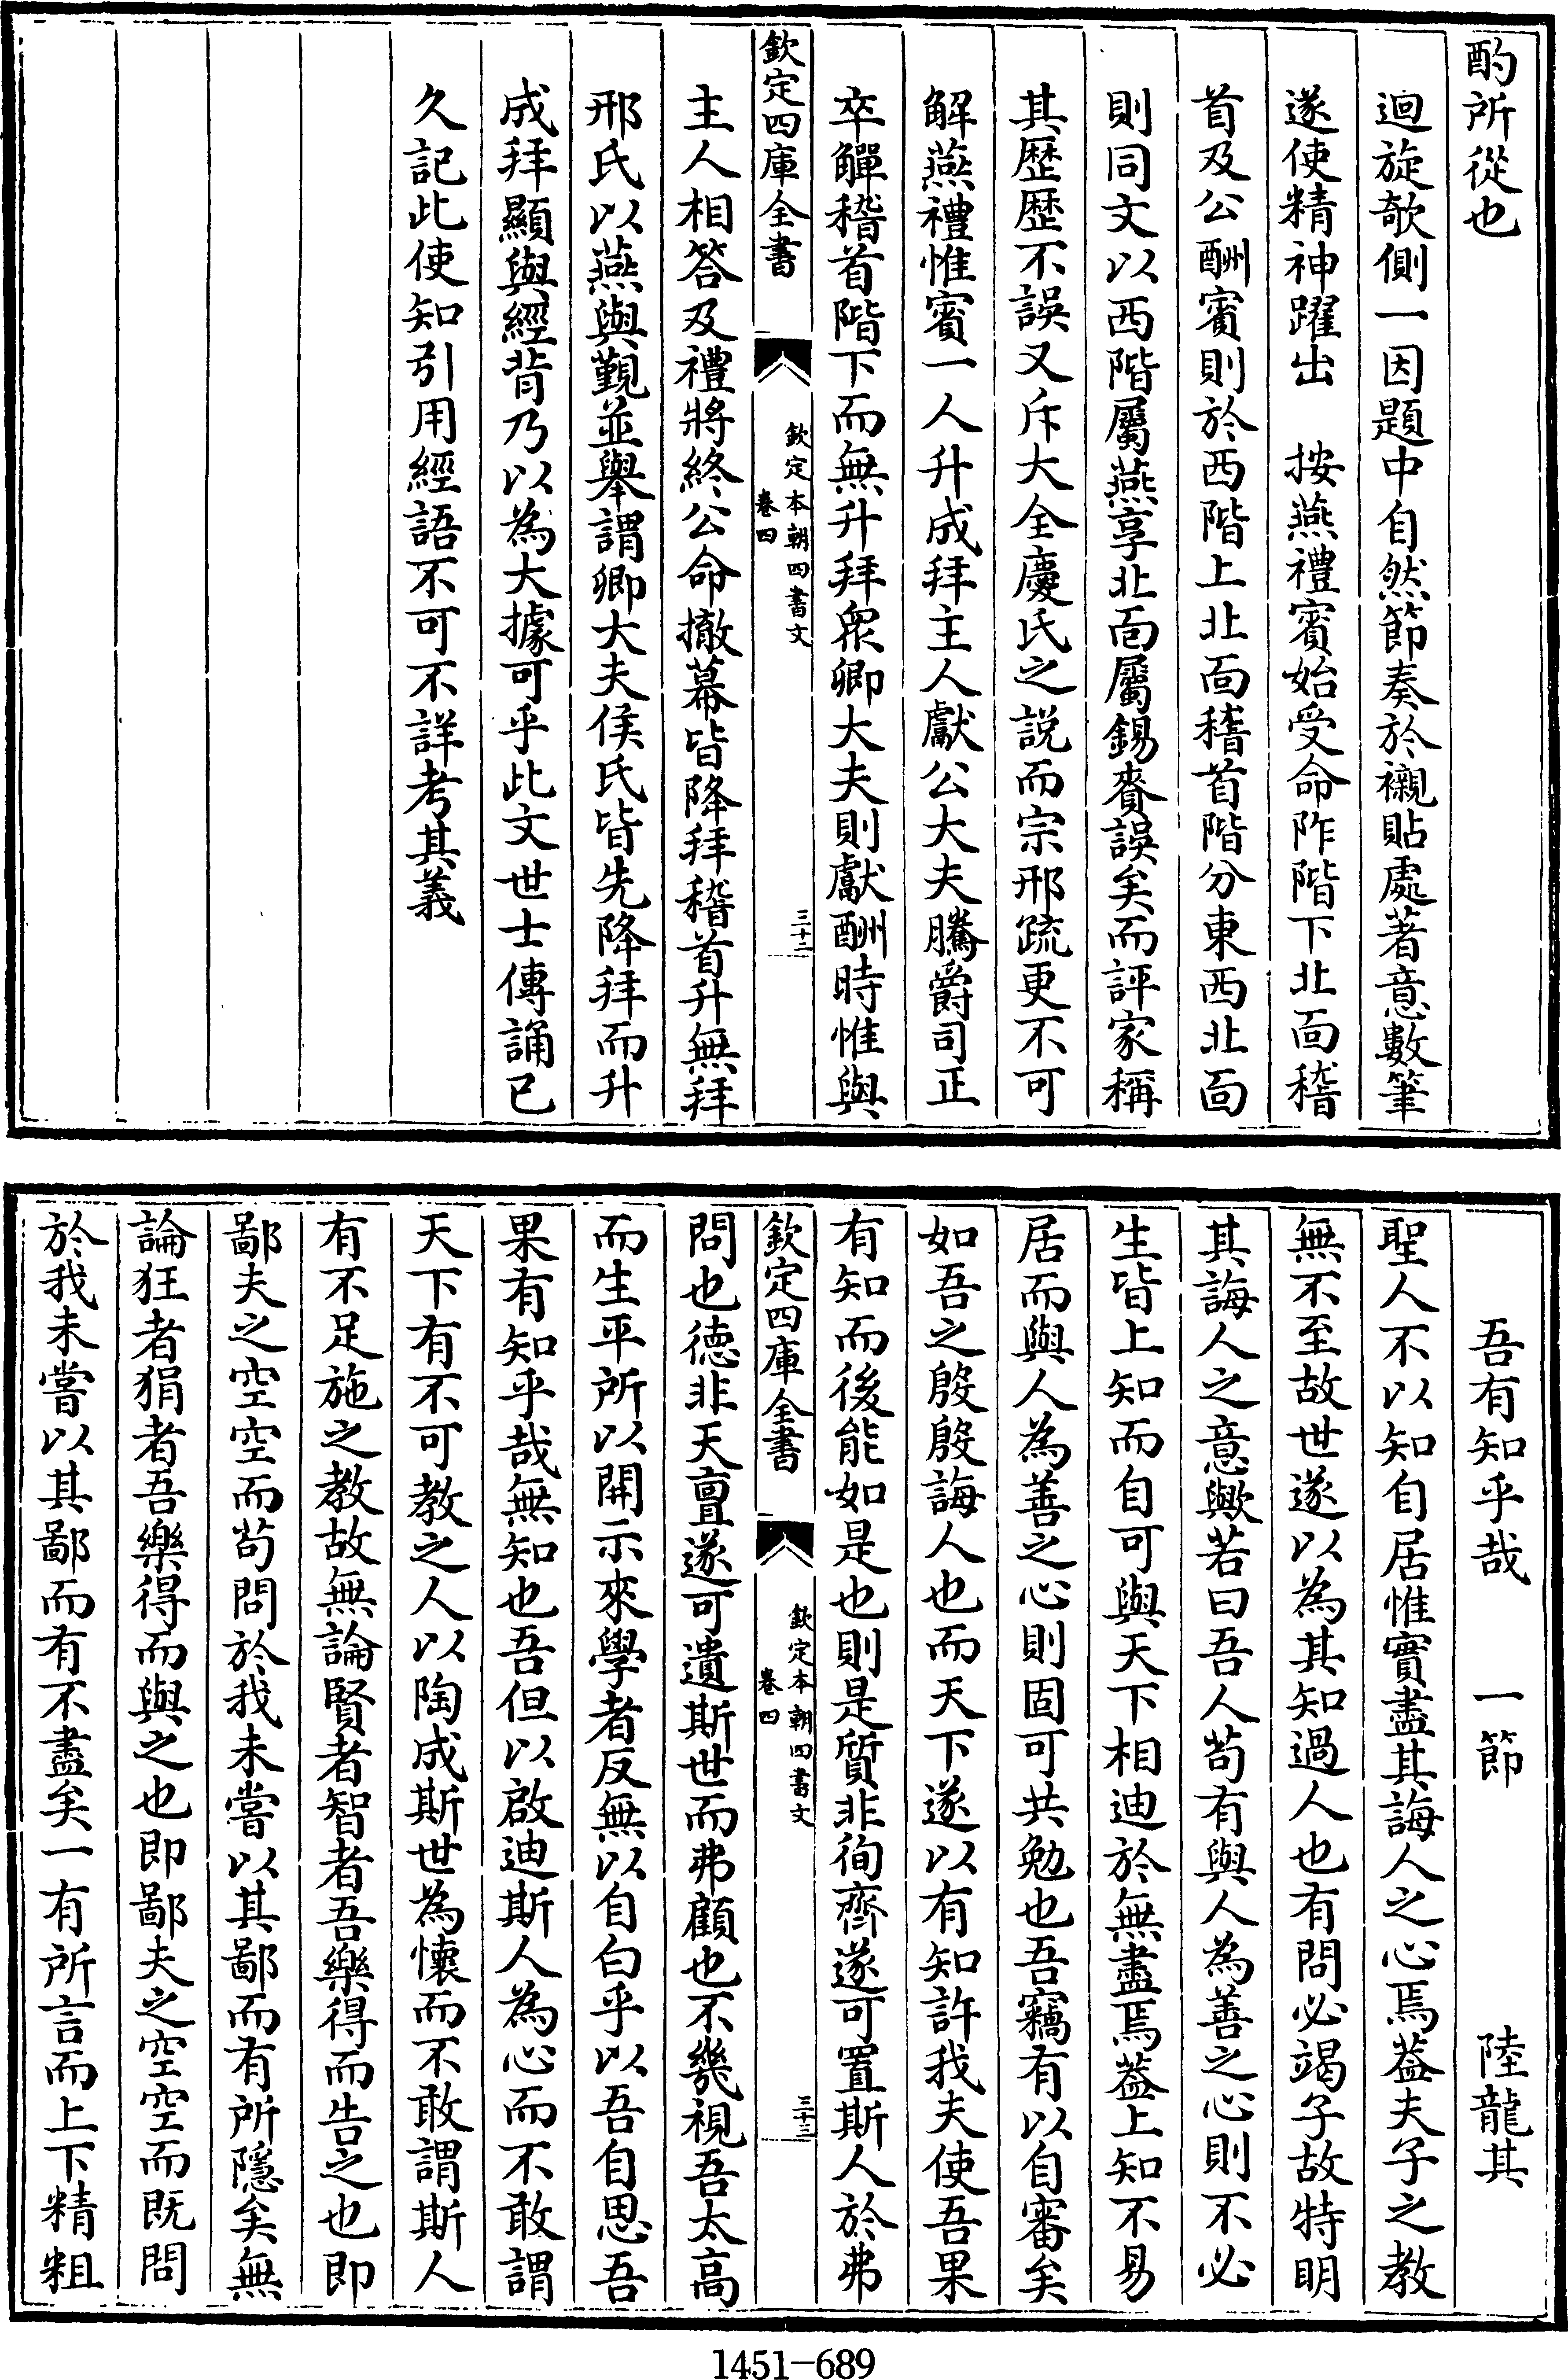 酌所從也
迴旋欹側一因題中自然節奏於襯貼處著意數筆
遂使精神躍出　按燕禮賓始受命阼階下北面稽
首及公酬賓則於西階上北面稽首階分東西北面
則同文以西階屬燕享北面屬錫賚誤矣而評家稱
其歴歴不誤又斥大全慶氏之説而宗邢疏更不可
解燕禮惟賓一人升成拜主人獻公大夫騰爵司正
卒觶稽首階下而無升拜眾卿大夫則獻酬時惟與
欽定四庫全書
欽定本朝四書文
卷四
三十二
主人相答及禮將終公命撤幕皆降拜稽首升無拜
邢氏以燕與覲並舉謂卿大夫侯氏皆先降拜而升
成拜顯與經背乃以為大據可乎此文世士傳誦已
久記此使知引用經語不可不詳考其義
吾有知乎哉　一節　陸龍其
聖人不以知自居惟實盡其誨人之心焉葢夫子之教
無不至故世遂以為其知過人也有問必竭子故特明
其誨人之意歟若曰吾人苟有與人為善之心則不必
生皆上知而自可與天下相迪於無盡焉葢上知不易
居而與人為善之心則固可共勉也吾竊有以自審矣
如吾之殷殷誨人也而天下遂以有知許我夫使吾果
有知而後能如是也則是質非徇齊遂可置斯人於弗
欽定四庫全書
欽定本朝四書文
卷四
三十三
問也德非天亶遂可遺斯世而弗顧也不幾視吾太高
而生平所以開示來學者反無以自白乎以吾自思吾
果有知乎哉無知也吾但以啟迪斯人為心而不敢謂
天下有不可教之人以陶成斯世為懷而不敢謂斯人
有不足施之教故無論賢者智者吾樂得而告之也即
鄙夫之空空而苟問於我未嘗以其鄙而有所隱矣無
論狂者狷者吾樂得而與之也即鄙夫之空空而既問
於我未嘗以其鄙而有不盡矣一有所言而上下精粗
1451-689